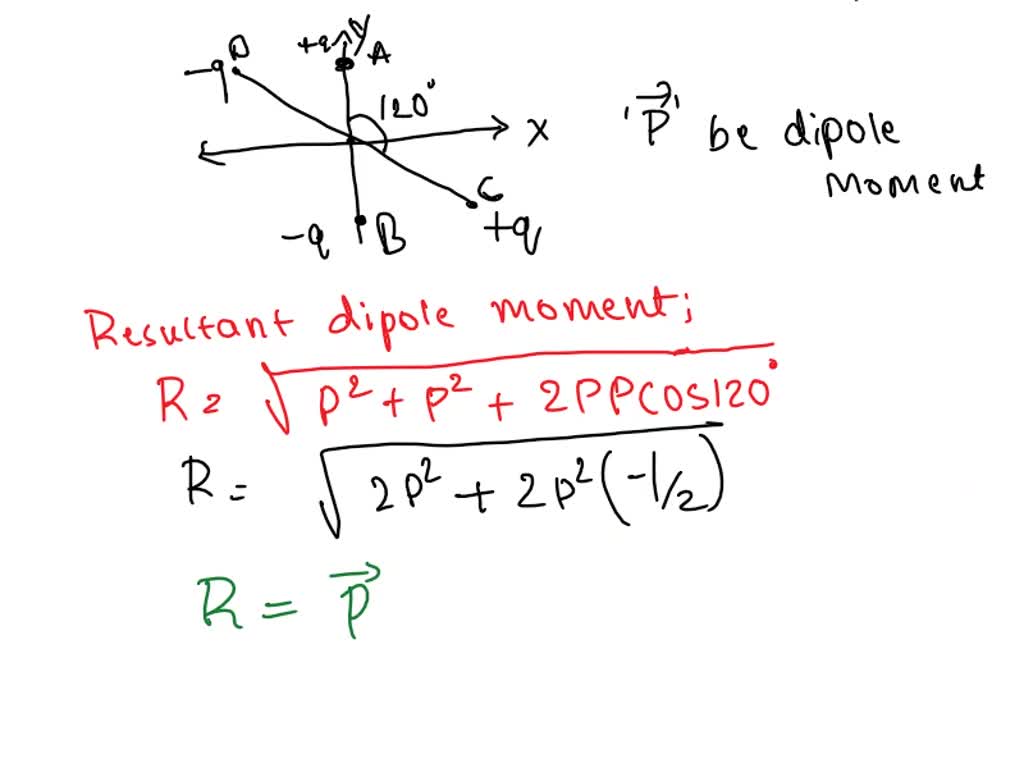 -q D
+q y
A
120°
X
-q B
C
+q
'P⃗' be dipole
moment
Resultant dipole moment;
R = √P² + P² + 2PPCOS120°
R = √2P² + 2P²(-1/2)
R = P⃗